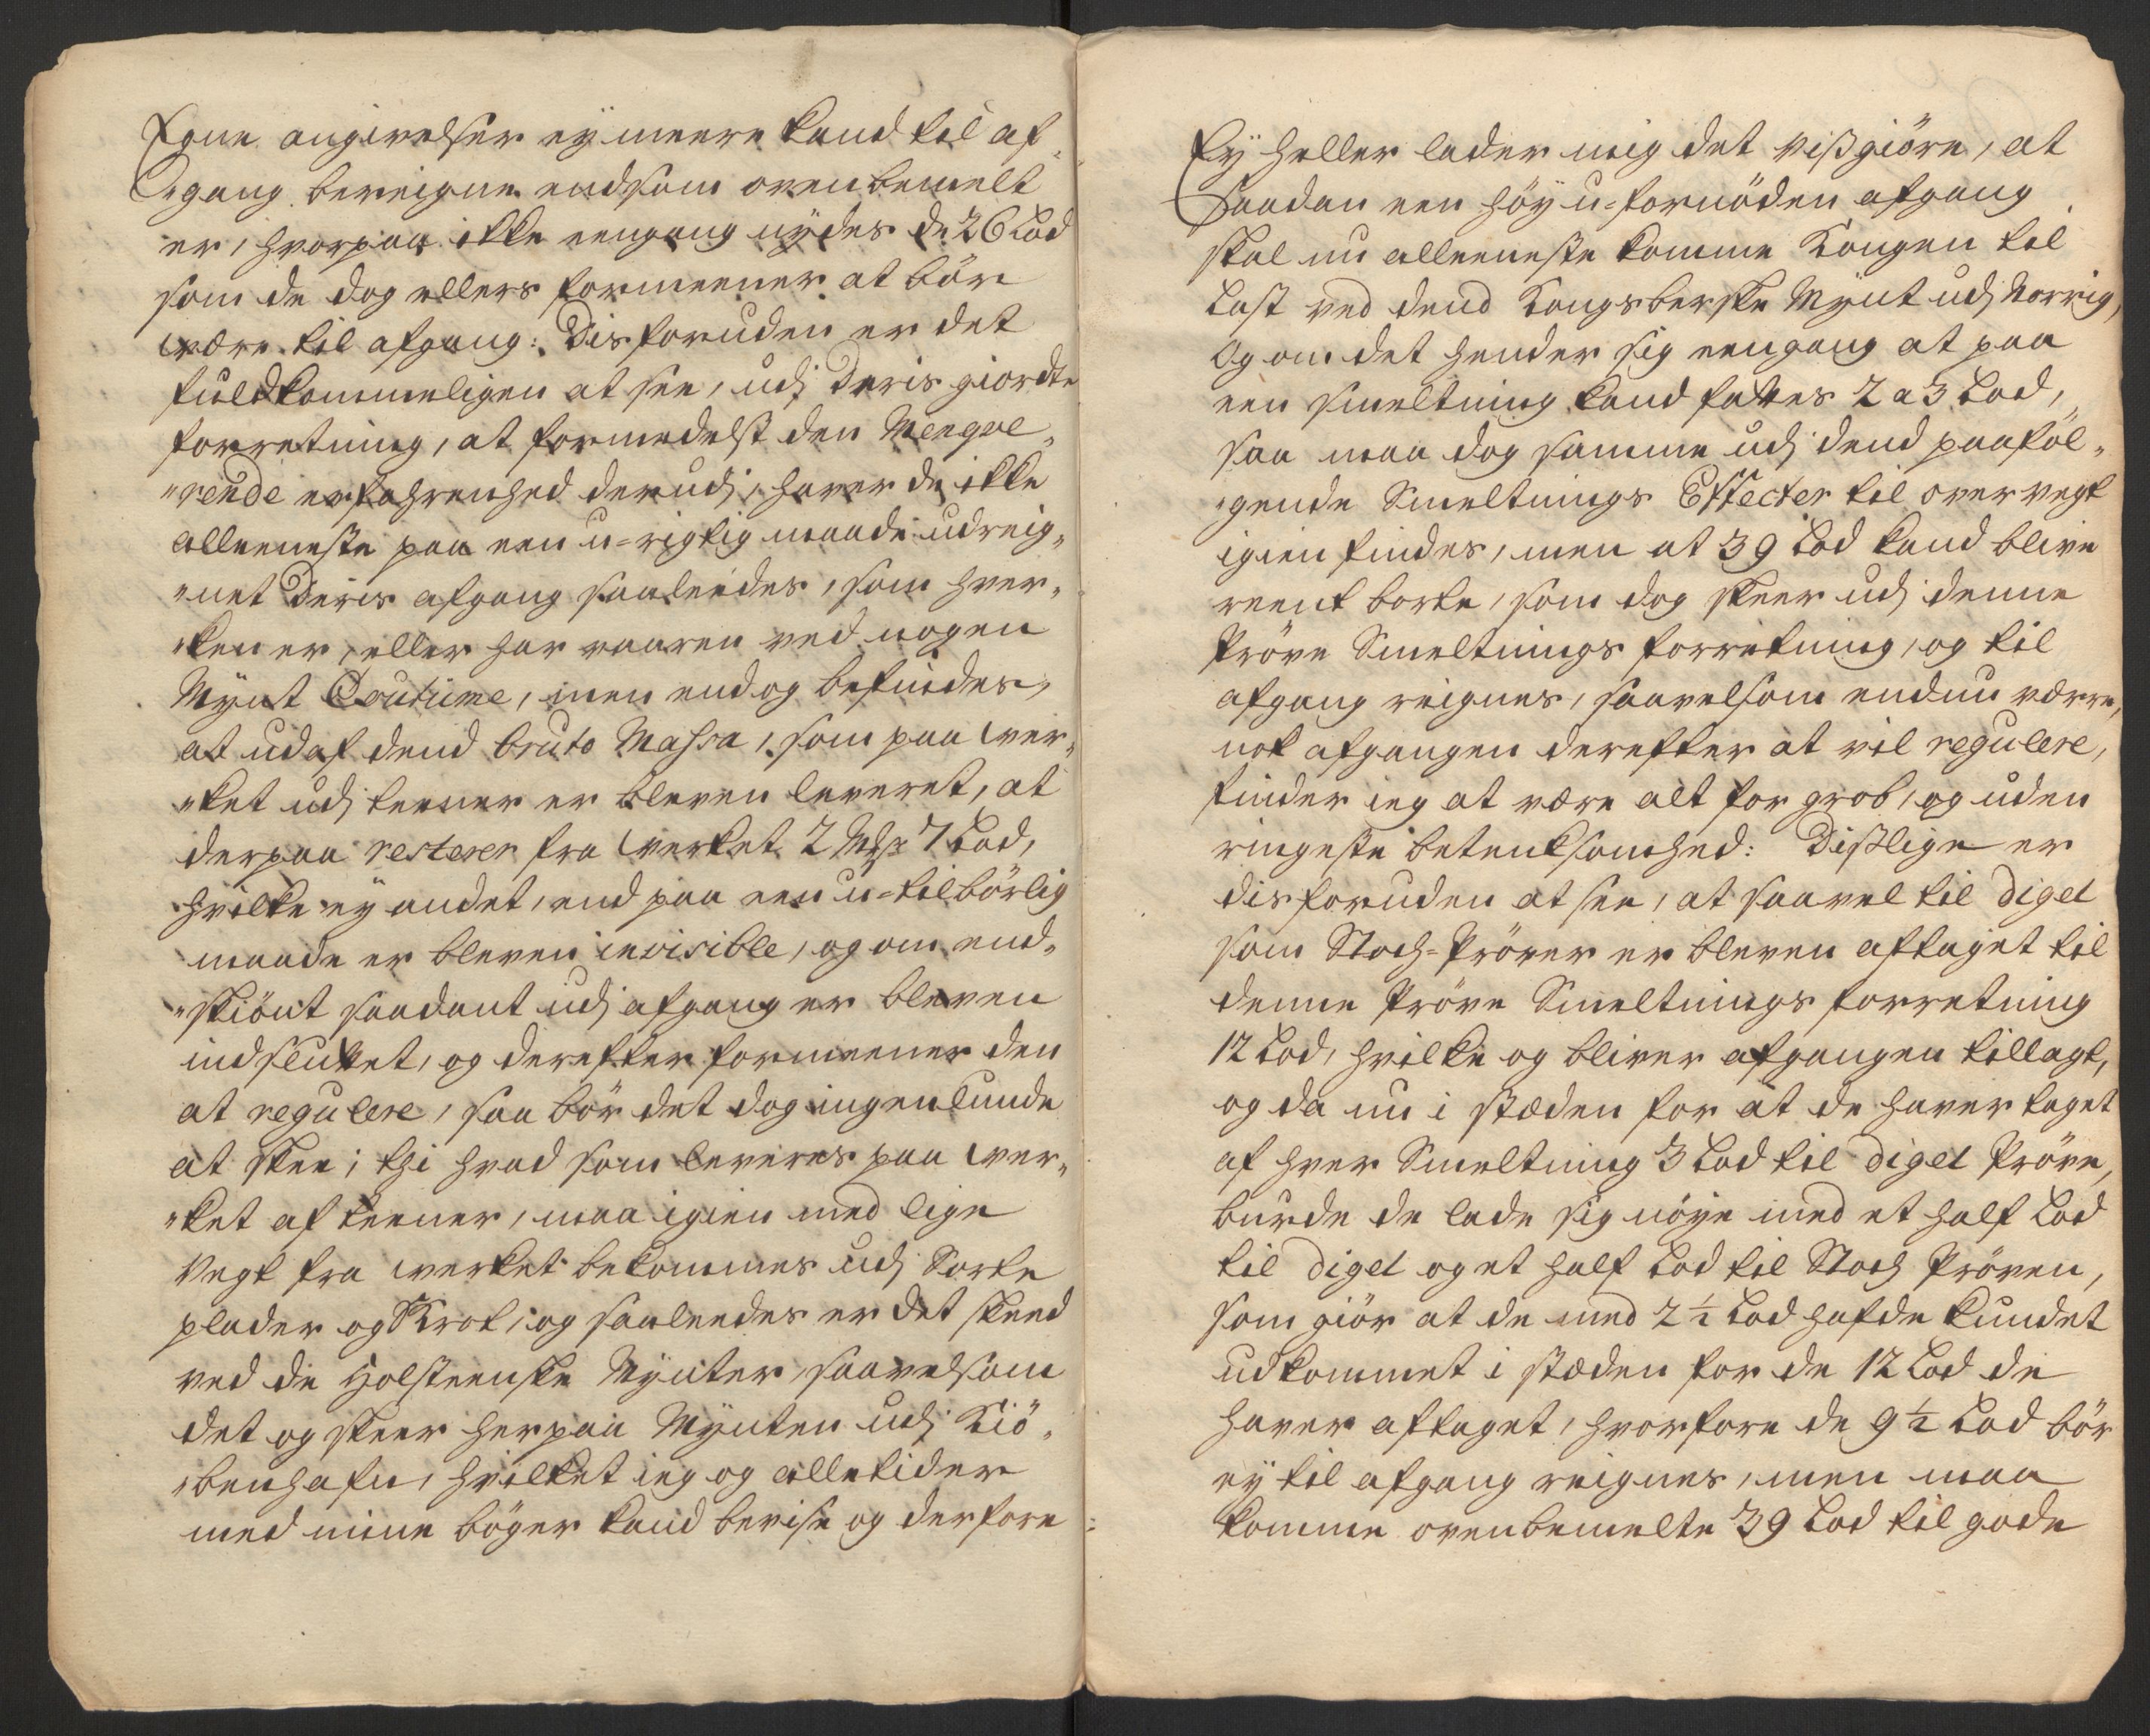 Egne angivelser ey meere kand til af¬
„gang bereigne endsom ovenbemelt
er, hvorpaa ikke eengang nydes de 26 Lod
som de dog ellers formeener at bör
være til afgang: Dis foruden er det
fuldkommeligen at see, udj deris giordte
forretning, at formedelst den Mengqve¬
„rende erfahrenhed derudj, haver de ikke
alleeneste paa een u-rigtig maade udreig¬
„net deris afgang saaleedes, som hver¬
„ken er, eller har vaaren ved nogen
Mynt Coutume, men endog befindes,
at udaf dend bruto Massa, som paa ver¬
„ket udj teener er bleven leveret, at
derpaa resterer fra verket 2 Mk 7 Lod,
hvilke ey andet, end paa een u-tilbörlig
maade er bleven invisible, og om end¬
„skiönt saadant udj afgang er bleven
indsluttet, og derefter formeener den
at regulere, saa bör det dog ingenlunde
at skee; thi hvad som leveres paa ver¬
„ket af teener, maa igien med lige
Vegt fra verket bekommes udj Sorte
plader og Skrot, og saaleedes er det skeed
ved de Holsteenske Mynter, saavelsom
det og skeer herpaa Mynten udj Kiö¬
„benhafn, hvilket ieg og alletider
med mine böger kand bevise og derfore
Ey heller lader mig det vißgiöre, at
saadan een höy u-fornöden afgang
skal nu alleeneste komme Kongen til
Last ved dend Kongsberske Mynt udj Norrig,
Og om det hender sig eengang at paa
een smeltning kand fattes 2 a 3 Lod,
saa maa dog samme udj dend paaföl¬
„gende Smeltnings Effecter til overvegt
igien findes, men at 39 Lod kand blive
reent borte, som dog skeer udj denne
Pröve Smeltnings forretning, og til
afgang reignes, saavelsom endnu værre,
nok afgangen derefter at vil regulere,
finder ieg at være alt for grob, og uden
ringeste betenksomhed: Dißlige er
disforuden at see, at saavel til digel
som Stoch-Pröver er bleven aftaget til
denne Pröve Smeltnings forretning
12 Lod, hvilke og bliver afgangen tillagt,
og da nu i stæden for at de haver taget
af hver Smeltning 3 Lod til digel Pröve,
burde de lade sig nöye med et half Lod
til digel og et half Lod til Stoch Pröven,
som giör at de med 2½ Lod hafde kundet
udkommet i stæden for de 12 Lod de
haver aftaget, hvorfore de 9½ Lod bör
ey til afgang reignes, men maa
komme ovenbemelte 39 Lod til gode